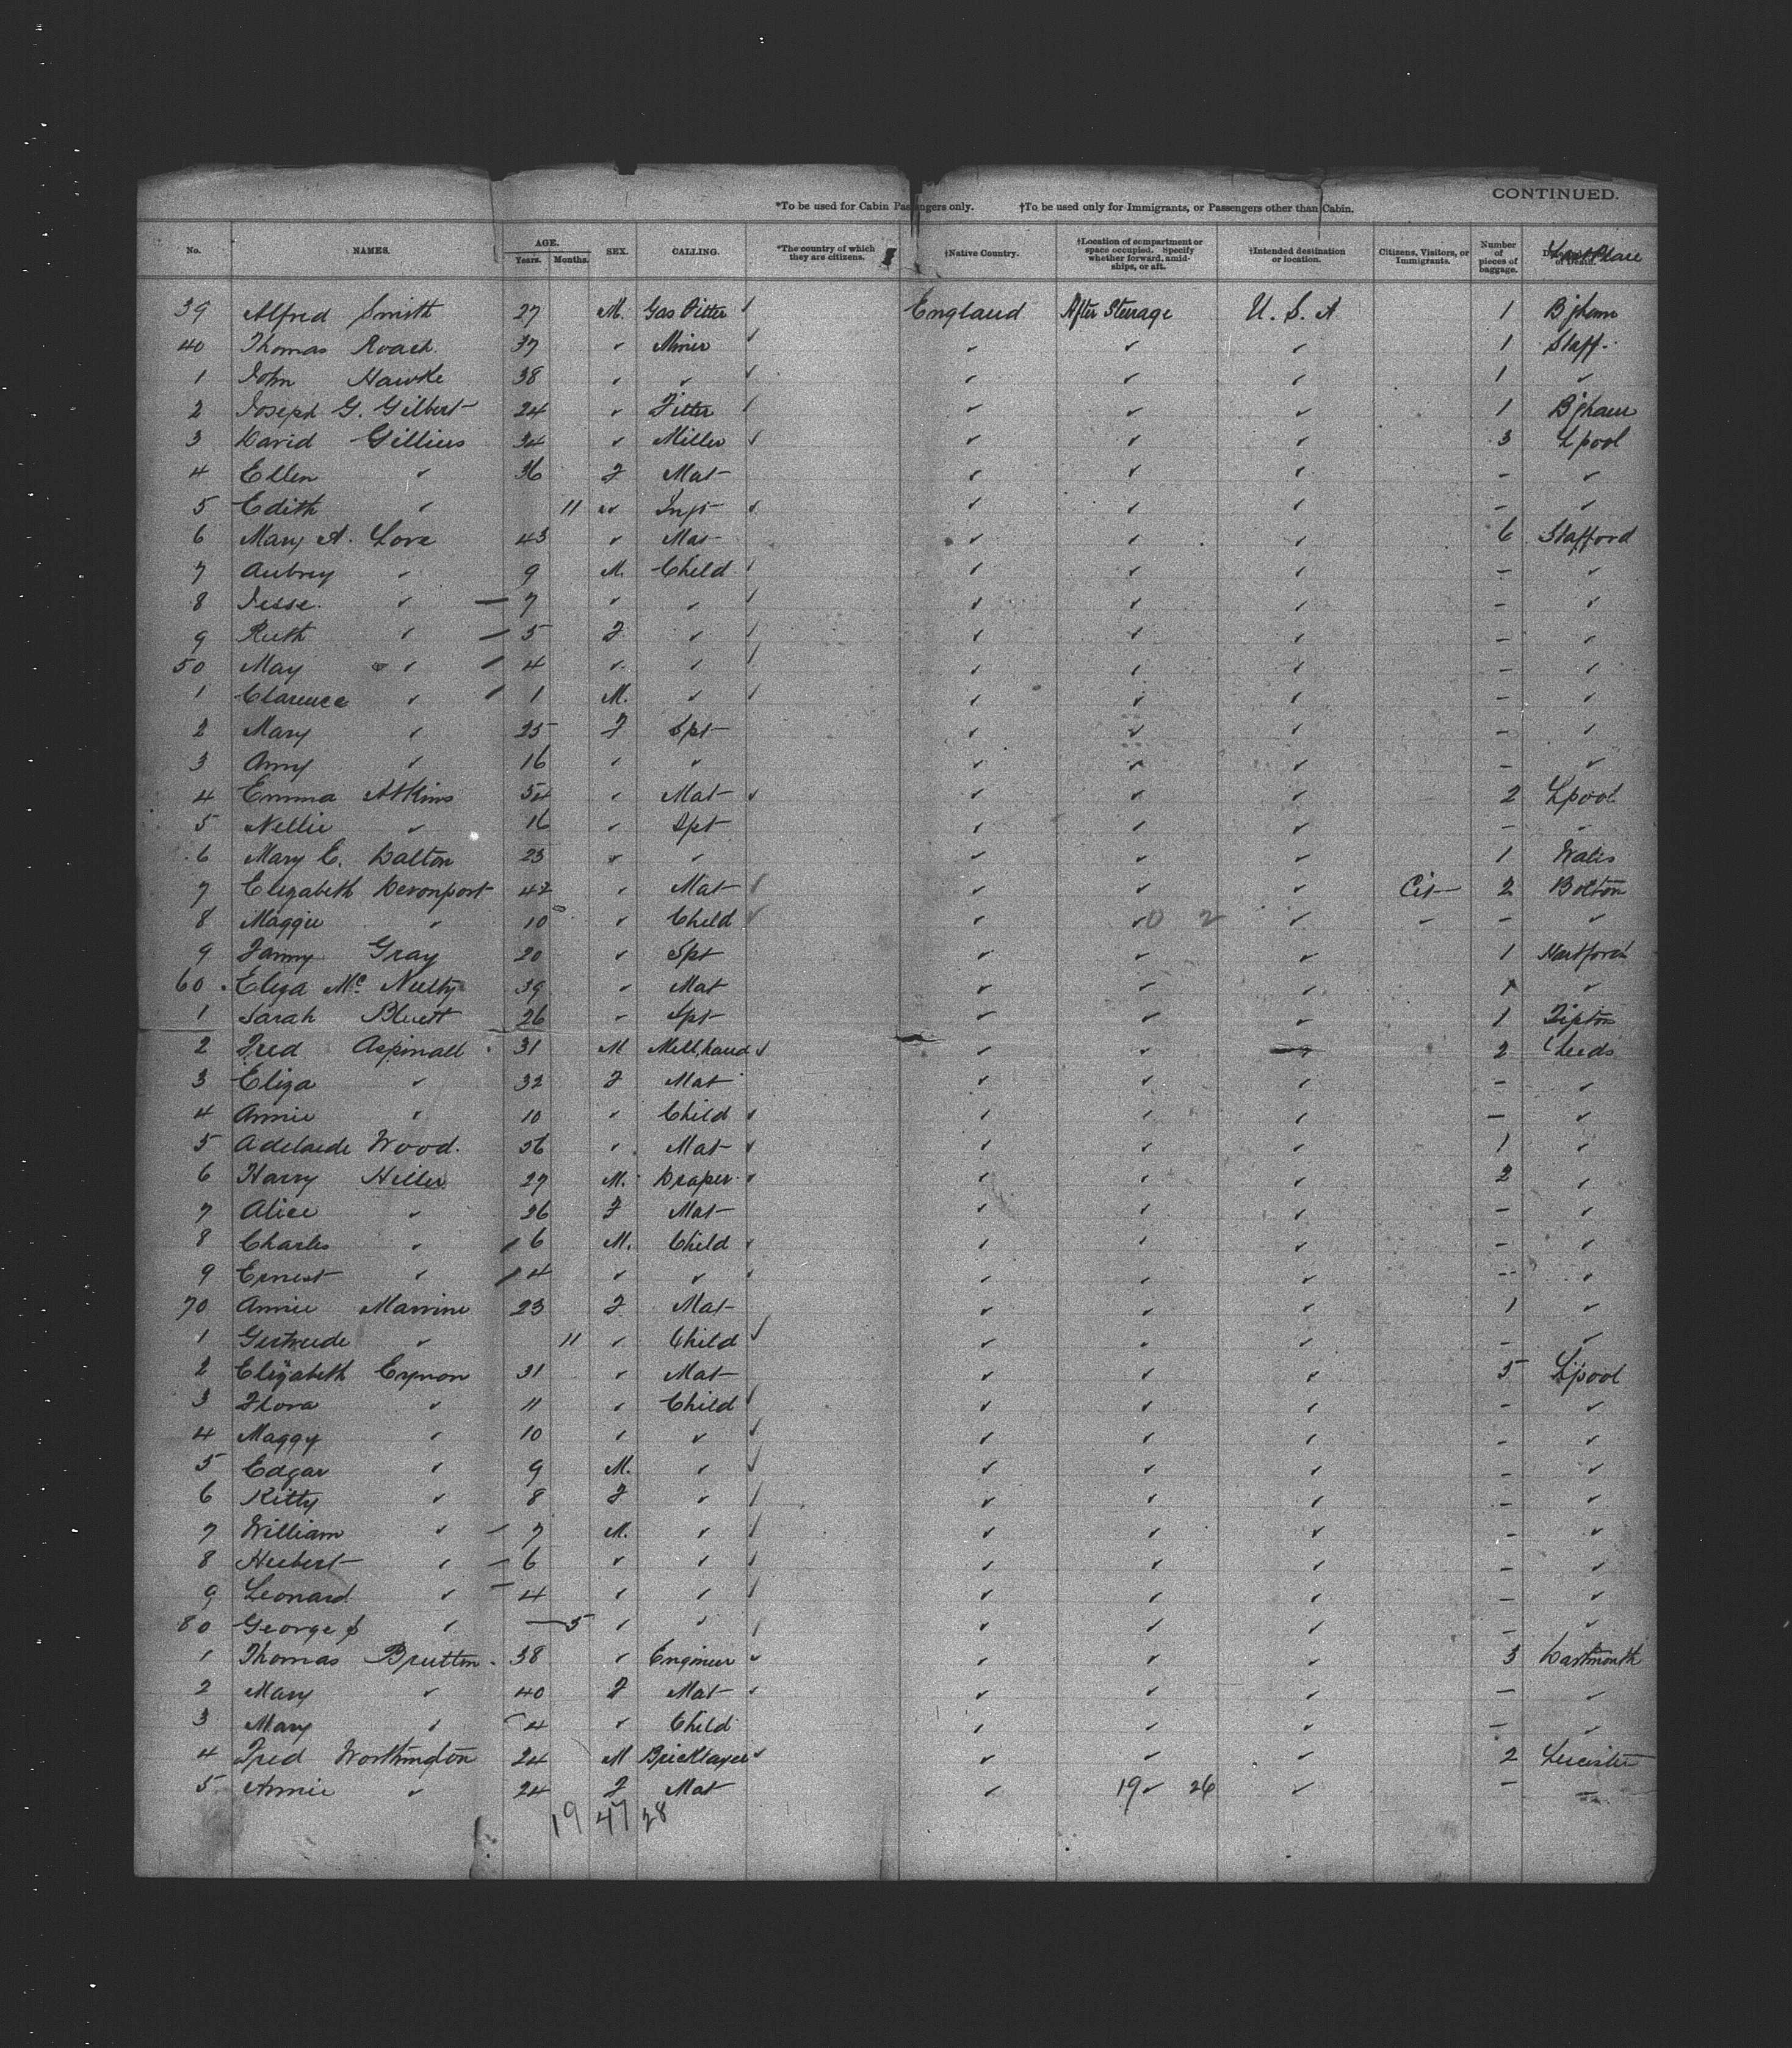 CONTINUED.
*To be used for Cabin Passengers only. †To be used only for Immigrants, or Passengers other than Cabin.
No. NAMES. AGE. Years. Months. SEX. CALLING. *The country of which they are citizens. †Native Country. †Location of compartment or space occupied. Specify whether forward, amidships, or aft. †Intended destination or location. Citizens, Visitors, or Immigrants. Number of pieces of baggage. Last Place
39 Alfred Smith 27 M. Gas Fitter ✓ England After Steerage U. S. A 1 B'gham
40 Thomas Roach 37 ✓ Miner ✓ ✓ ✓ ✓ 1 Staff.
1 John Hawke 38 ✓ ✓ ✓ ✓ ✓ ✓ 1 ✓
2 Joseph G. Gilbert 24 ✓ Fitter ✓ ✓ ✓ ✓ 1 B'gham
3 David Gillies 34 ✓ Miller ✓ ✓ ✓ ✓ 3 L'pool
4 Ellen ✓ 36 F Mat ✓ ✓ ✓ - ✓
5 Edith ✓ 11 ✓ Inft ✓ ✓ ✓ ✓ - ✓
6 Mary A. Love 43 ✓ Mat ✓ ✓ ✓ 6 Stafford
7 Aubrey ✓ 9 M. Child ✓ ✓ ✓ ✓ - ✓
8 Jesse ✓ - 7 ✓ ✓ ✓ ✓ ✓ ✓ - ✓
9 Ruth ✓ - 5 F ✓ ✓ ✓ ✓ ✓ - ✓
50 May ✓ - 4 ✓ ✓ ✓ ✓ ✓ ✓ - ✓
1 Clarence ✓ - 1 M. ✓ ✓ ✓ ✓ ✓ - ✓
2 Mary ✓ 25 F Spt ✓ ✓ ✓ - ✓
3 Amy ✓ 16 ✓ ✓ ✓ ✓ ✓ - ✓
4 Emma Atkins 54 ✓ Mat ✓ ✓ ✓ ✓ 2 L'pool
5 Nellie ✓ 16 ✓ Spt ✓ ✓ ✓ - -
6 Mary E. Dalton 23 ✓ ✓ ✓ ✓ ✓ 1 Wales
7 Elizabeth Devonport 42 ✓ Mat ✓ ✓ ✓ ✓ Cit 2 Bolton
8 Maggie ✓ 10 ✓ Child ✓ ✓ ✓ 0 2 ✓ - - ✓
9 Fanny Gray 20 ✓ Spt ✓ ✓ ✓ 1 Hartford
60 Eliza Mc Nulty 39 ✓ Mat ✓ ✓ ✓ 1 ✓
1 Sarah Bluett 26 ✓ Spt ✓ ✓ ✓ 1 Tipton
2 Fred Aspinall 31 M Mill hand ✓ ✓ ✓ ✓ 2 Leeds
3 Eliza ✓ 32 F Mat ✓ ✓ ✓ - ✓
4 Annie ✓ 10 ✓ Child ✓ ✓ ✓ ✓ - ✓
5 Adelaide Wood. 56 ✓ Mat ✓ ✓ ✓ ✓ 1 ✓
6 Harry Hiller 27 M. Draper ✓ ✓ ✓ ✓ 2 ✓
7 Alice ✓ 26 F Mat ✓ ✓ ✓ - ✓
8 Charles ✓ - 6 M. Child ✓ ✓ ✓ ✓ - ✓
9 Ernest ✓ - 4 ✓ ✓ ✓ ✓ ✓ ✓ - ✓
70 Annie 23 F Mat ✓ ✓ ✓ 1 ✓
1 Gertrude ✓ 11 ✓ Child ✓ ✓ ✓ ✓ - ✓
2 Elizabeth Eynon 31 ✓ Mat ✓ ✓ ✓ 5 L'pool
3 Flora ✓ 11 ✓ Child ✓ ✓ ✓ ✓ - ✓
4 Maggy ✓ 10 ✓ ✓ ✓ ✓ ✓ ✓ - ✓
5 Edgar ✓ 9 M. ✓ ✓ ✓ ✓ ✓ - ✓
6 Kitty ✓ 8 F ✓ ✓ ✓ ✓ ✓ - ✓
7 William ✓ - 7 M. ✓ ✓ ✓ ✓ ✓ - ✓
8 Hubert ✓ - 6 ✓ ✓ ✓ ✓ ✓ ✓ - ✓
9 Leonard ✓ - 4 ✓ ✓ ✓ ✓ ✓ ✓ - ✓
80 George ✓ - 5 ✓ ✓ ✓ ✓ ✓ ✓ - ✓
1 Thomas Brutton 38 ✓ Engineer ✓ ✓ ✓ ✓ 3 Dartmouth
2 Mary ✓ 40 F Mat ✓ ✓ ✓ ✓ - ✓
3 Mary ✓ - 4 ✓ Child ✓ ✓ ✓ - ✓
4 Fred Worthington 24 M Bricklayer ✓ ✓ ✓ ✓ 2 Leicester
5 Annie ✓ 24 F Mat ✓ 19 ✓ 26 ✓ - -
19 47 28